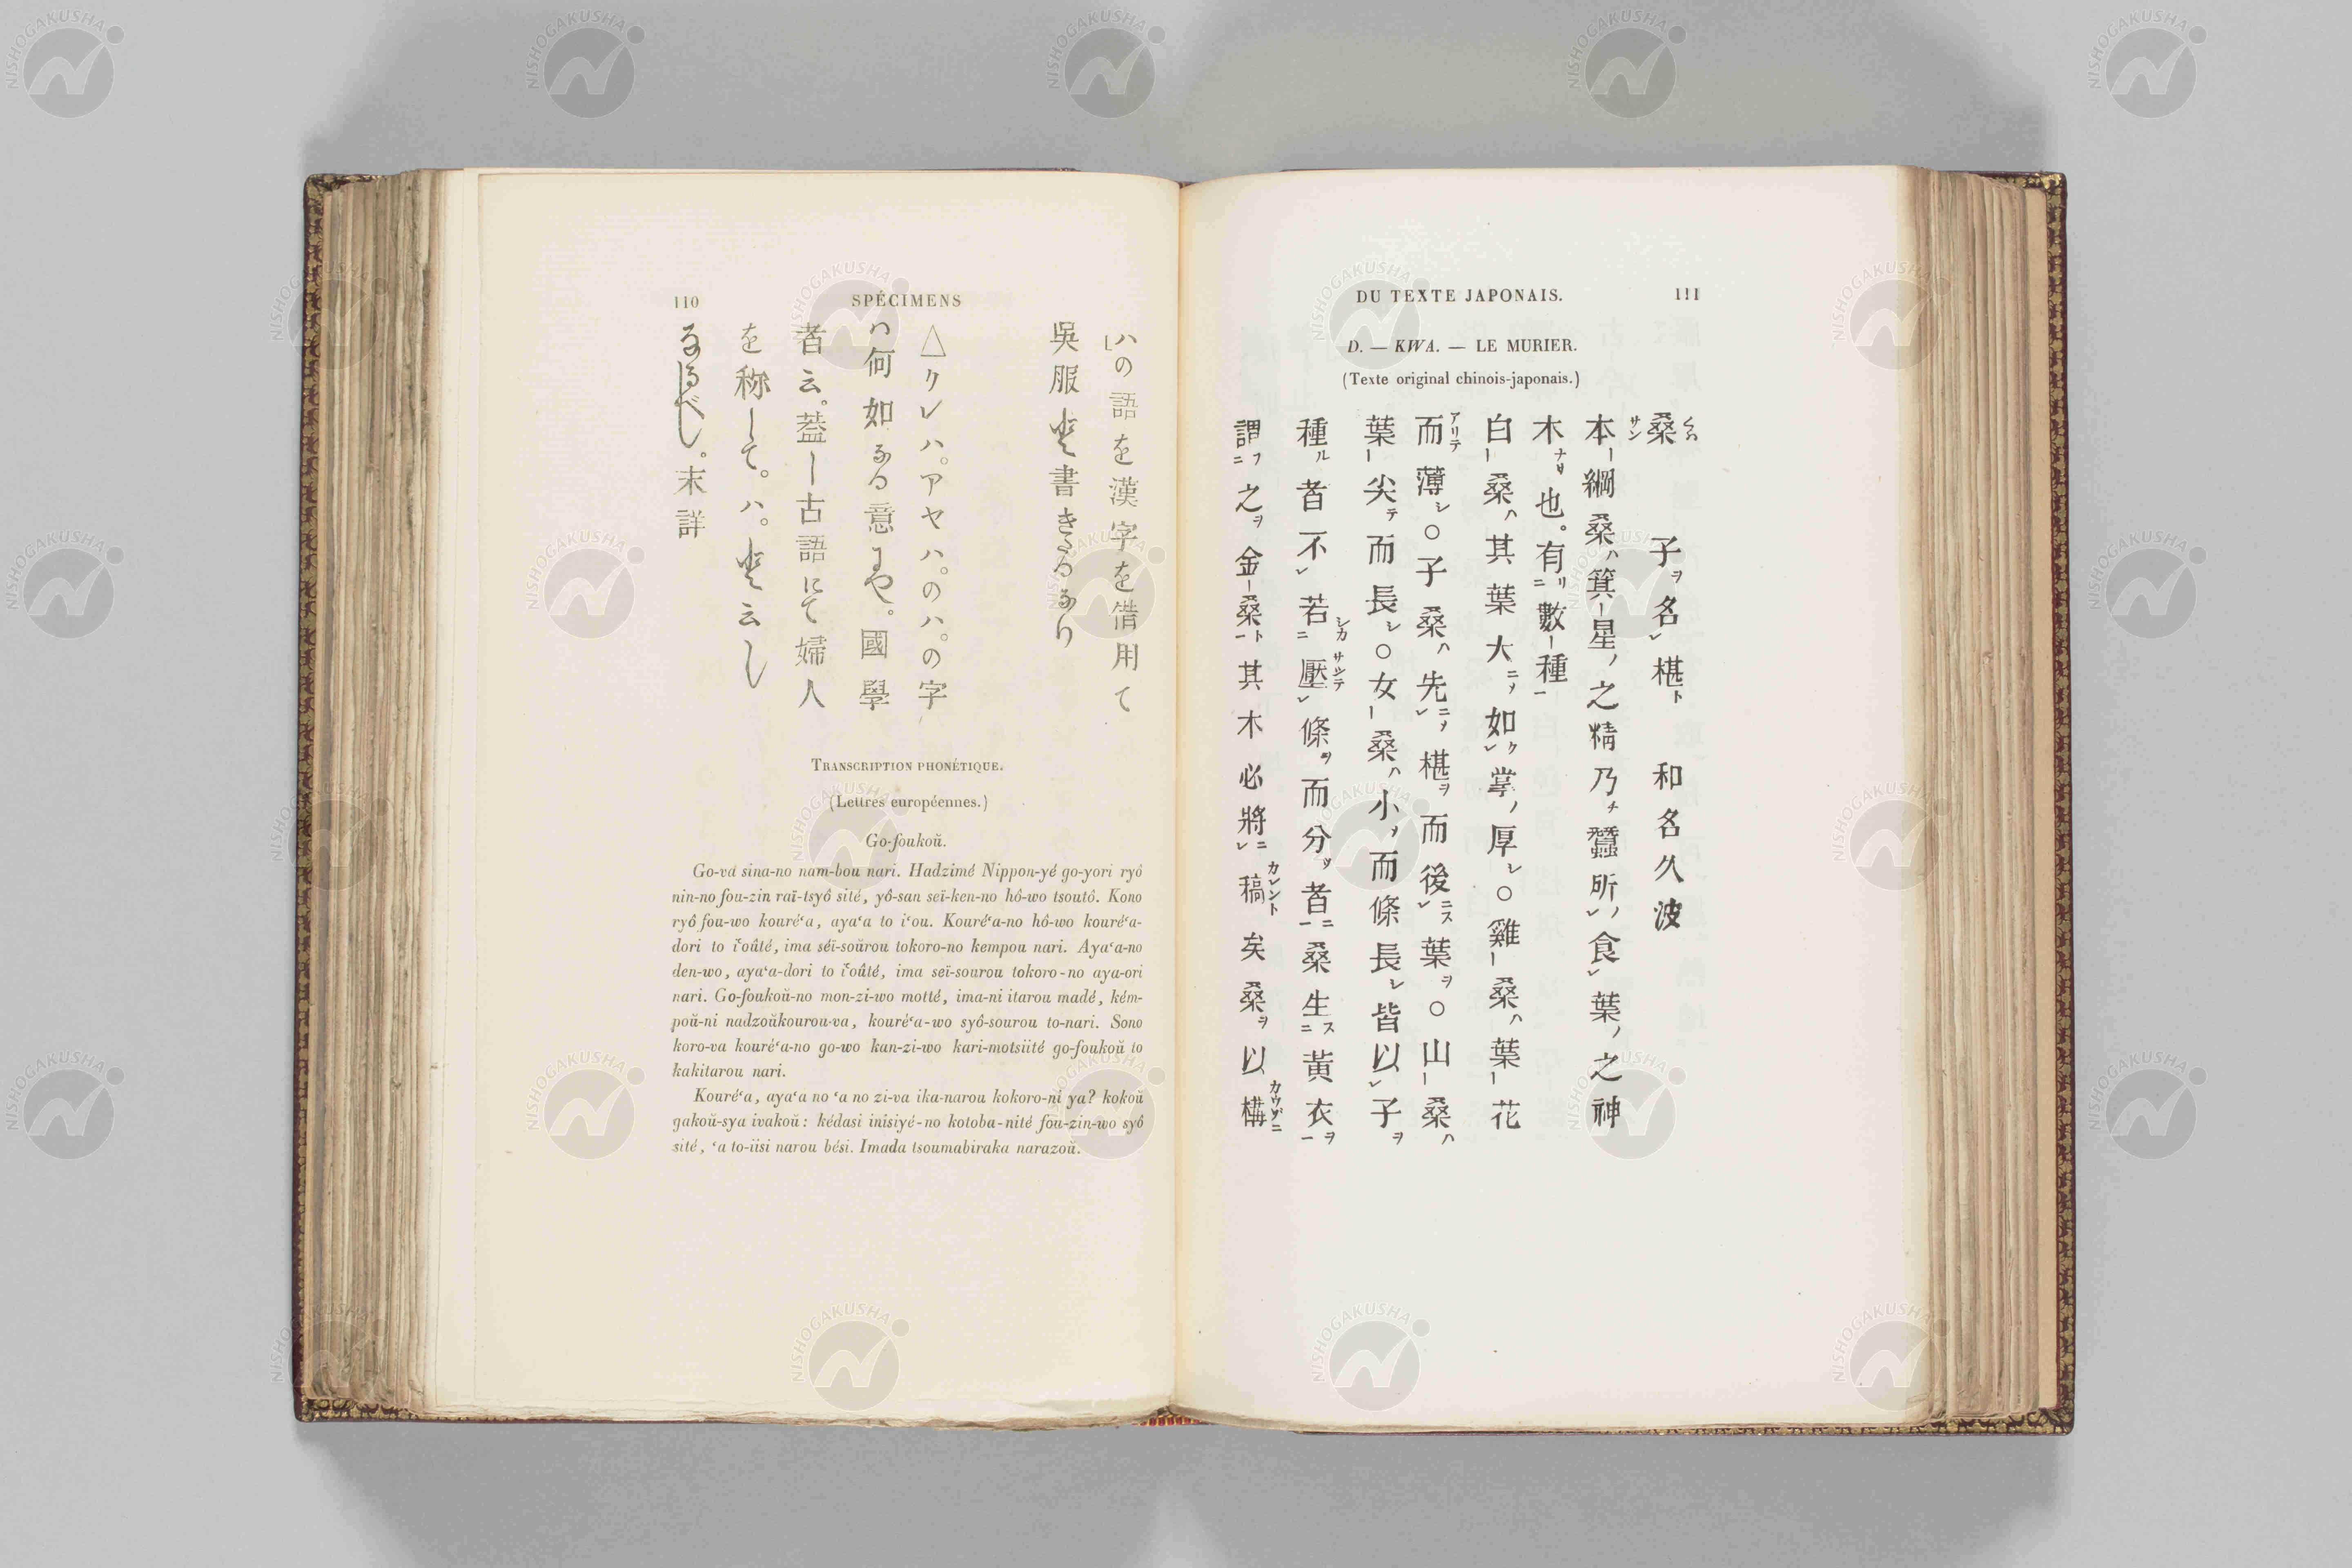 110
SPÉCIMENS
ハの語を漢字を借用て
呉服と書きたるなり
△クレハ。アヤハ。のハ。の字
ハ何如なる意にや。國學
者云。葢―古語にて婦人
を称して。ハ。と云し
なるべし。末詳
TRANSCRIPTION PHONÉTIQUE.
(Lettres européennes.)
Go-foukoŭ.
Go-va sina-no nam-bou nari. Hadzimé Nippon-yé go-yori ryó
nin-no fou-zin raï-tsyô sité, yô-san seï-ken-no hô-wo tsoutô. Kono
ryô fou-wo kouréʻa, ayaʻa to iʻou. Kouréʻa-no hô-wo kouréʻa-
dori to iʻoûté, ima séï-soŭrou tokoro-no kempou nari. Ayaʻa-no
den-wo, ayaʻa-dori to iʻoûté, ima seï-sourou tokoro-no aya-ori
nari. Go-foukoŭ-no mon-zi-wo motté, ima-ni itarou madé, kém-
poŭ-ni nadzoŭkourou-va, kouréʻa-wo syô-sourou to-nari. Sono
koro-va kouréʻa-no go-wo kan-zi-wo kari-motsiité go-foukoŭ to
kakitarou nari.
Kouréʻa, ayaʻa no ʻa no zi-va ika-narou kokoro-ni ya? kokoŭ
gakoŭ-sya ivakoŭ: kédasi inisiyé-no kotoba-nité fou-zin-wo syô
sité, ʻa to-iisi narou bési. Imada tsoumabiraka narazoŭ.
DU TEXTE JAPONAIS.
111
D. — KWA. — LE MURIER.
(Texte original chinois-japonais.)
桑 子ヲ名レ椹ト 和名久波
本―綱桑ハ箕―星ノ之精乃チ蠶所レノ食レ葉ノ之神
木ナリ也。有二リ數―種一
白―桑ハ其葉大ニノ如レク掌ノ厚シ○雞―桑ハ葉―花
而アリテ薄シ○子桑ハ先レニノ椹ヲ而後レニス葉ヲ○山―桑ハ
葉―尖テ而長シ○女―桑ハ小ノ而條長シ皆以レ子ヲ
種ル者不レ若二シカ壓サシテレ條ヲ而分ツ者一ニ桑生二ス黃衣一ヲ
謂二フ之ヲ金―桑一ト其木必將レニ稿カレント矣桑ヲ以構カウゾニ